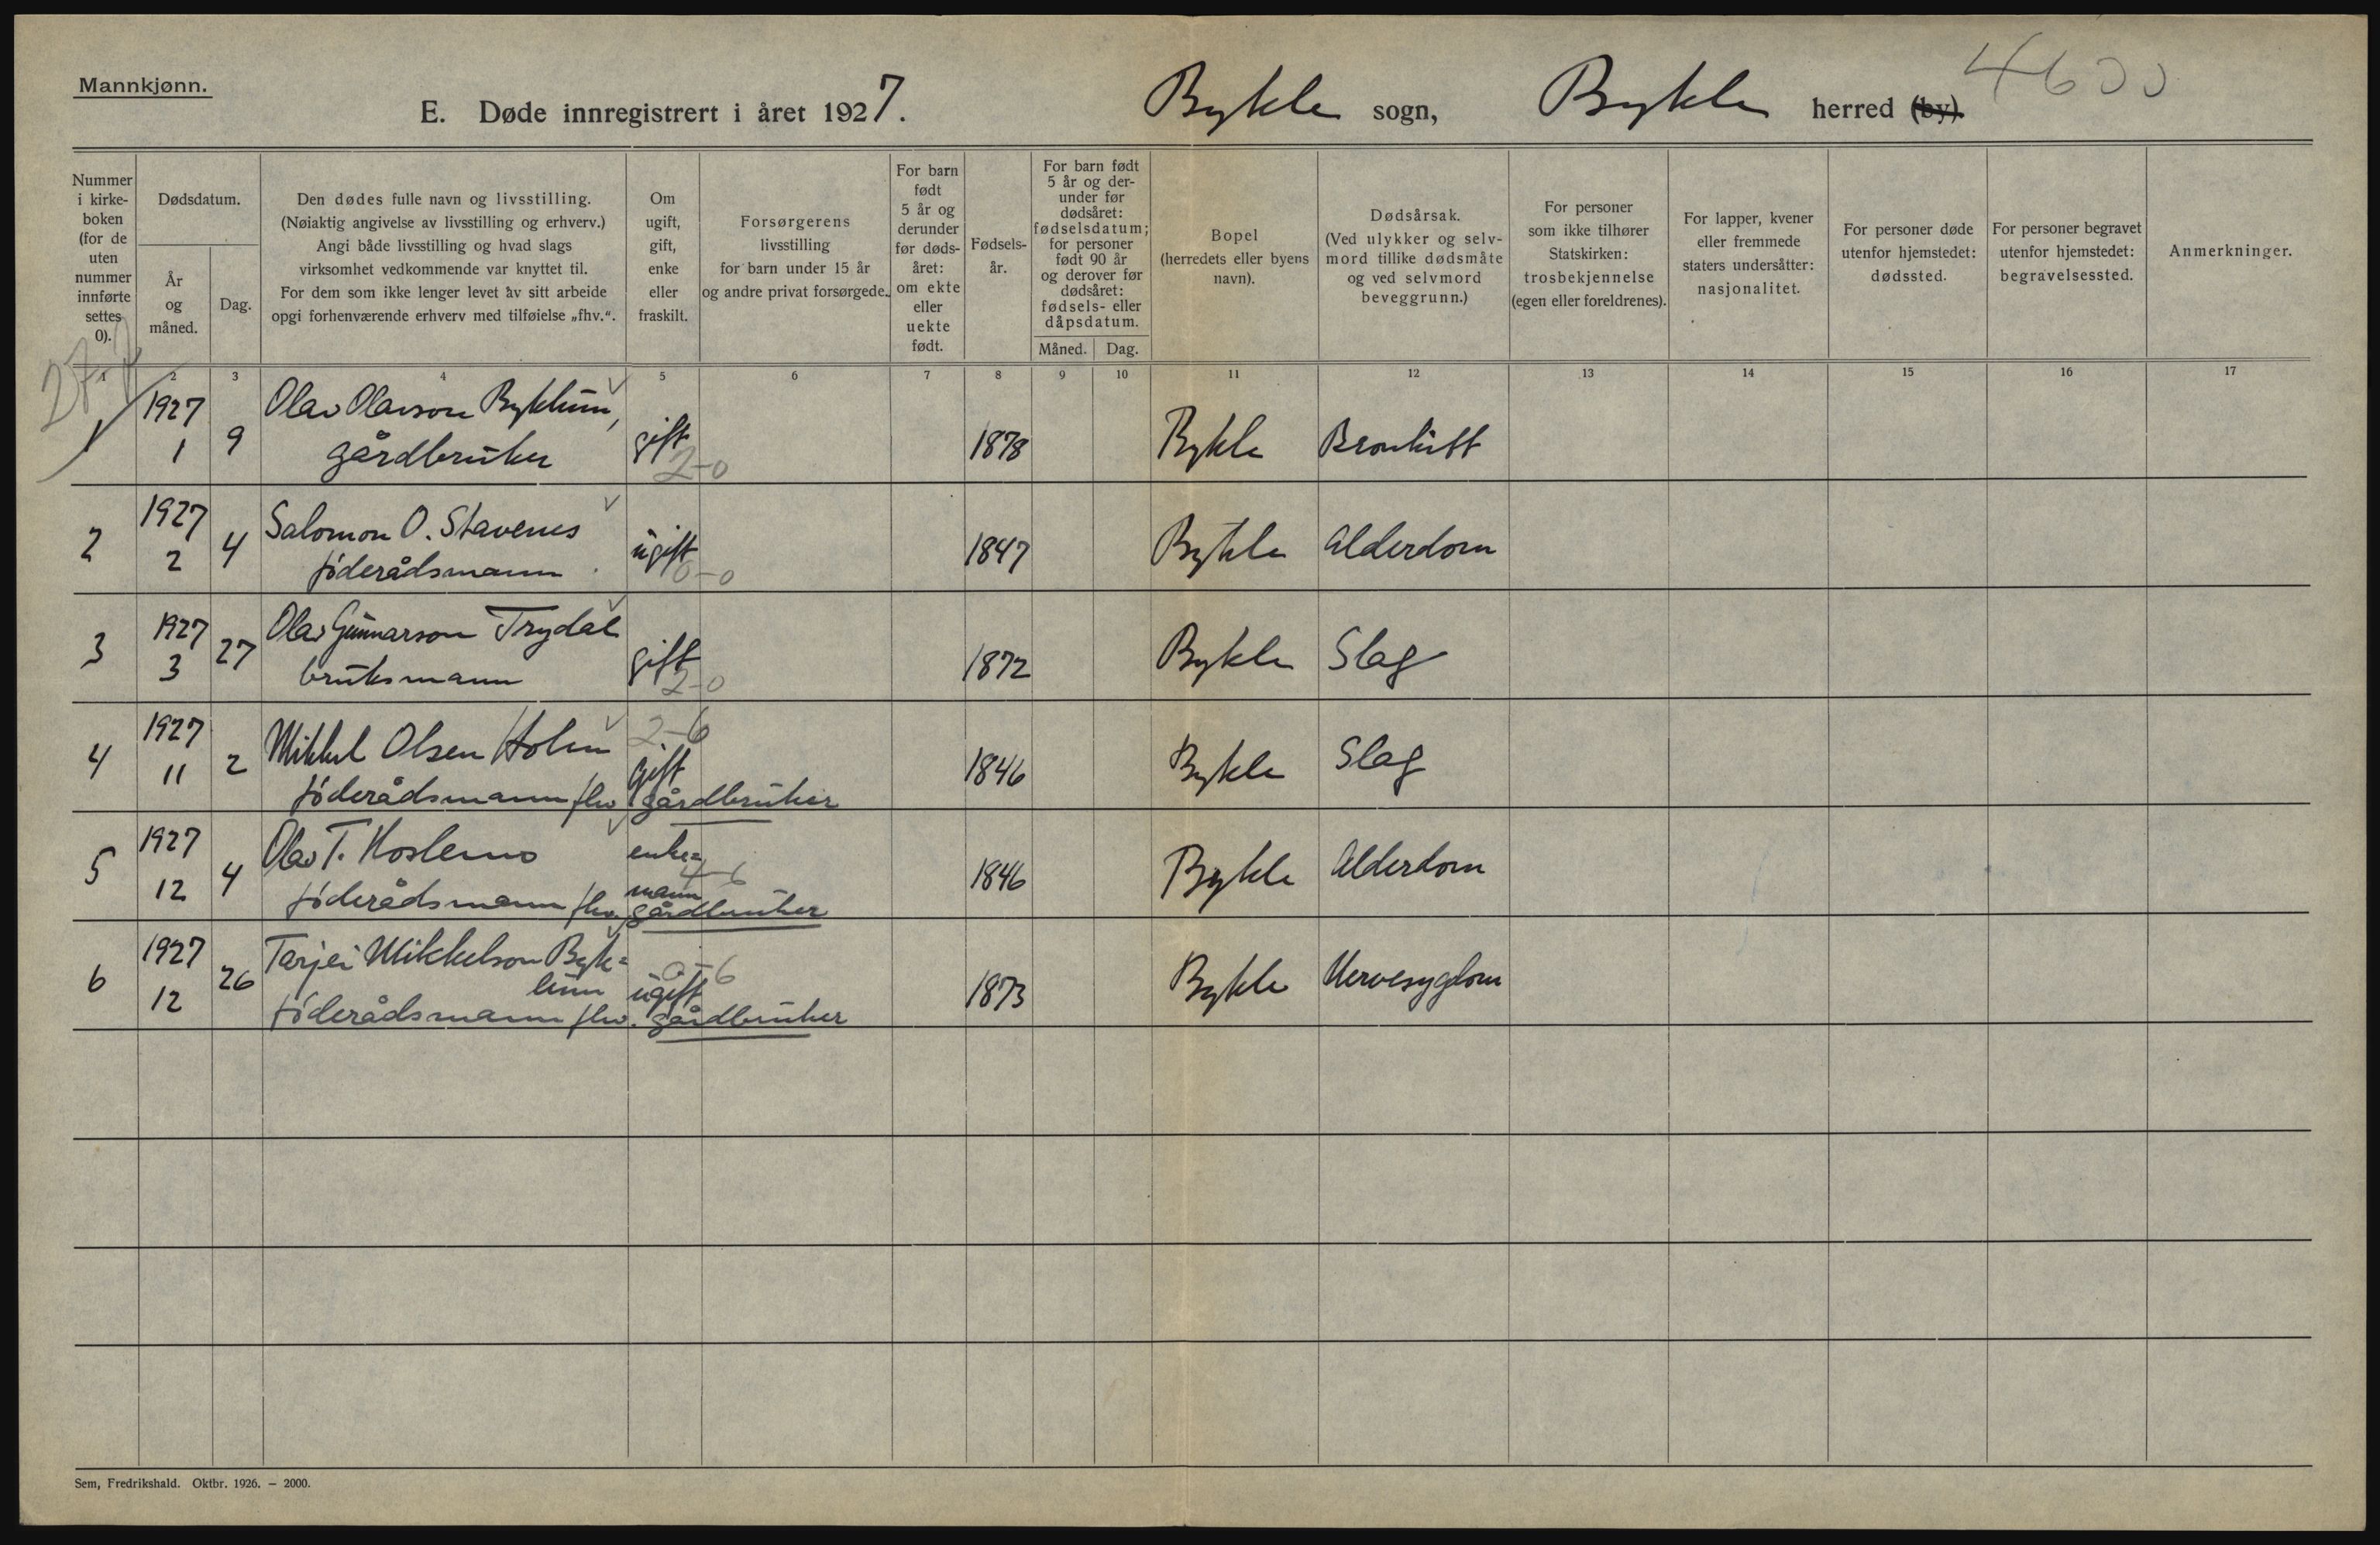 Mannkjønn.
E. Døde innregistrert i året 1927. Bykle sogn, Bykle herred (by).
4600
Nummer i kirke-boken (for de uten nummer innførte settes 0).
Dødsdatum.
År og måned.
Dag.
Den dødes fulle navn og livsstilling.
(Nøiaktig angivelse av livsstilling og erhverv.)
Angi både livsstilling og hvad slags
virksomhet vedkommende var knyttet til.
For dem som ikke lenger levet av sitt arbeide
opgi forhenværende erhverv med tilføielse „fhv.“.
Om ugift, gift, enke eller fraskilt.
Forsørgerens livsstilling for barn under 15 år og andre privat forsørgede.
For barn født 5 år og derunder før døds-året: om ekte eller uekte født.
Fødsels-år.
For barn født 5 år og der-under før dødsåret: fødselsdatum; for personer født 90 år og derover før dødsåret: fødsels- eller dåpsdatum.
Måned. Dag.
Bopel (herredets eller byens navn).
Dødsårsak. (Ved ulykker og selv-mord tillike dødsmåte og ved selvmord beveggrunn.)
For personer som ikke tilhører Statskirken: trosbekjennelse (egen eller foreldrenes).
For lapper, kvener eller fremmede staters undersåtter: nasjonalitet.
For personer døde utenfor hjemstedet: dødssted.
For personer begravet utenfor hjemstedet: begravelsessted.
Anmerkninger.
1 2 3 4 5 6 7 8 9 10 11 12 13 14 15 16 17
1 1927 1 9 Olav Olavson Byklum, gårdbruker gift 2-0 1878 Bykle Bronkitt
2 1927 2 4 Salomon O. Stavenes føderådsmann ugift 0-0 1847 Bykle Alderdom
3 1927 3 27 Olav Gunnarson Trydal bruksmann gift 2-0 1872 Bykle Slag
4 1927 11 2 Mikkel Olsen Holen føderådsmann fhv gårdbruker gift 2-6 1846 Bykle Slag
5 1927 12 4 Olav T. Hoslemo føderådsmann fhv. gårdbruker enke=mann 4-6 1846 Bykle Alderdom
6 1927 12 26 Tarjei Mikkelson Byk=lum føderådsmann fhv. gårdbruker ugift 0-6 1873 Bykle Nervesygdom
Sem, Fredrikshald. Oktbr. 1926. — 2000.